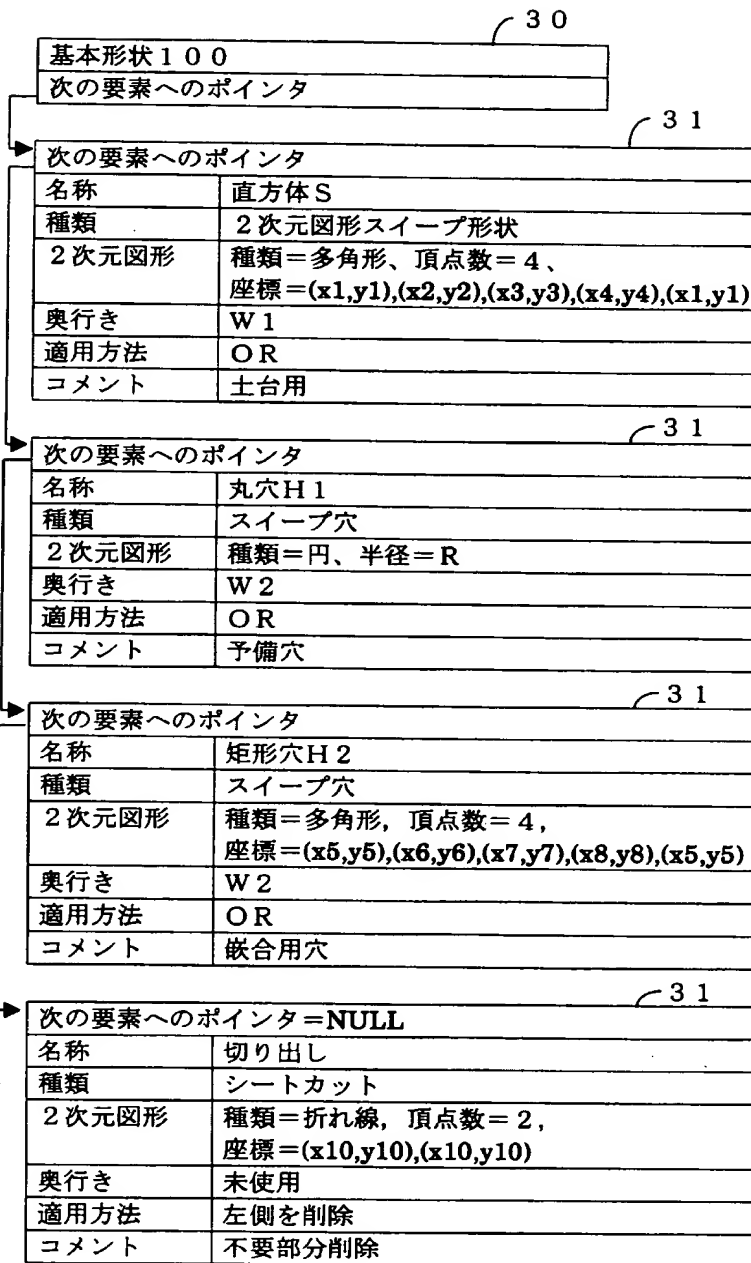 30
基本形状100
次の要素へのポインタ
31
次の要素へのポインタ
名称 直方体S
種類 2次元図形スイープ形状
2次元図形 種類=多角形、頂点数=4、
座標=(x1,y1),(x2,y2),(x3,y3),(x4,y4),(x1,y1)
奥行き W1
適用方法 OR
コメント 土台用
31
次の要素へのポインタ
名称 丸穴H1
種類 スイープ穴
2次元図形 種類=円、半径=R
奥行き W2
適用方法 OR
コメント 予備穴
31
次の要素へのポインタ
名称 矩形穴H2
種類 スイープ穴
2次元図形 種類=多角形，頂点数=4，
座標=(x5,y5),(x6,y6),(x7,y7),(x8,y8),(x5,y5)
奥行き W2
適用方法 OR
コメント 嵌合用穴
31
次の要素へのポインタ=NULL
名称 切り出し
種類 シートカット
2次元図形 種類=折れ線，頂点数=2，
座標=(x10,y10),(x10,y10)
奥行き 未使用
適用方法 左側を削除
コメント 不要部分削除